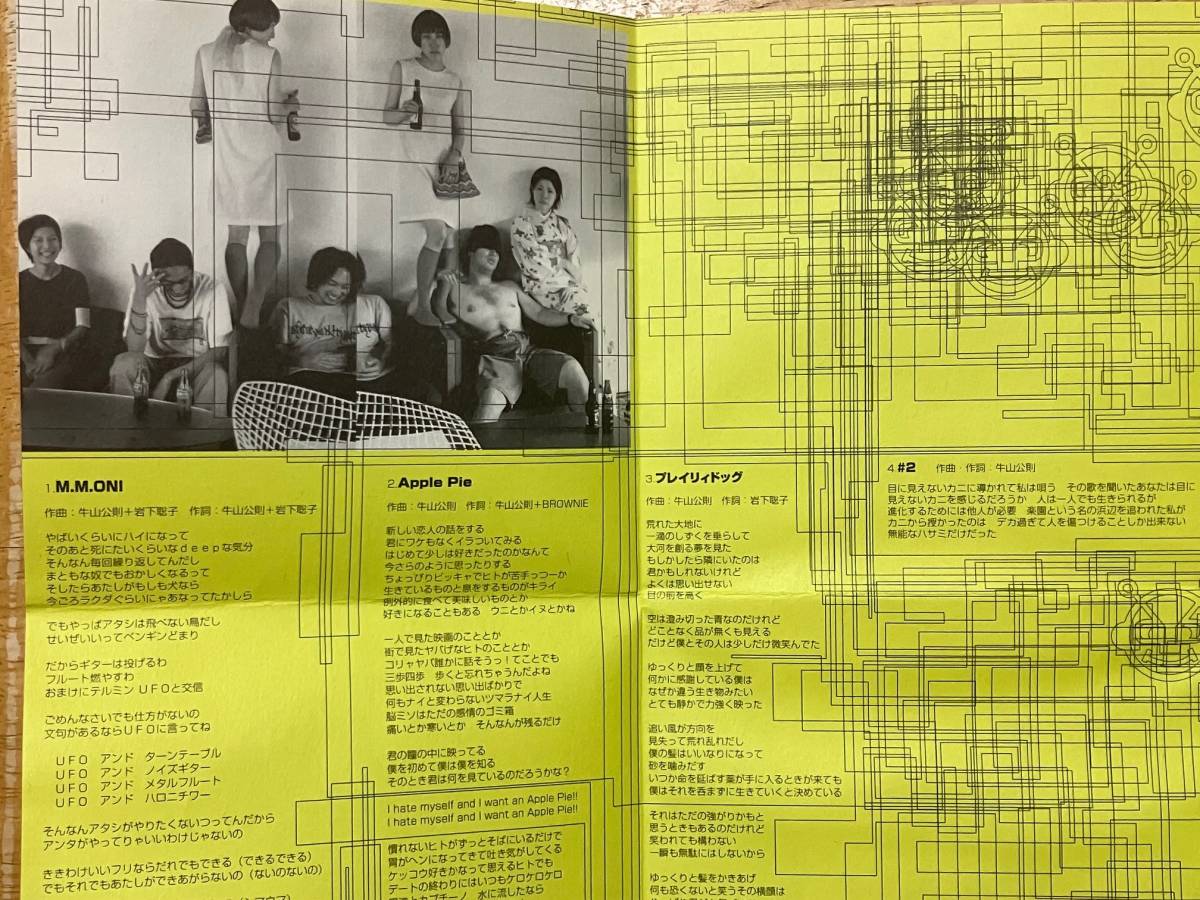 1.M.M.ONI
作曲：牛山公則＋岩下聡子　作詞：牛山公則＋岩下聡子
やばいくらいにハイになって
そのあと死にたいくらいなｄｅｅｐな気分
そんなん毎回繰り返してんだし
まともな奴でもおかしくなるって
そしたらあたしがもしも犬なら
今ごろラクダぐらいにゃあなってたかしら
でもやっぱアタシは飛べない鳥だし
せいぜいいってペンギンどまり
だからギターは投げるわ
フルート燃やすわ
おまけにテルミン ＵＦＯと交信
ごめんなさいでも仕方がないの
文句があるならＵＦＯに言ってね
ＵＦＯ　アンド　ターンテーブル
ＵＦＯ　アンド　ノイズギター
ＵＦＯ　アンド　メタルフルート
ＵＦＯ　アンド　ハロニチワー
そんなんアタシがやりたくないつってんだから
アンタがやってりゃいいわけじゃないの
ききわけいいフリならだれでもできる（できるできる）
でもそれでもあたしができあがらないの（ないのないの）
2.Apple Pie
作曲：牛山公則　作詞：牛山公則＋BROWNIE
新しい恋人の話をする
君にワケもなくイラついてみる
はじめて少しは好きだったのかなんて
今さらのように思ったりする
ちょっぴりビッキャでヒトが苦手っつーか
生きているものと息をするものがキライ
例外的に食べて美味しいものとか
好きになることもある　ウニとかイヌとかね
一人で見た映画のこととか
街で見たヤバげなヒトのこととか
コリャヤバ誰かに話そうっ！てことでも
三歩四歩　歩くと忘れちゃうんだよね
思い出されない思い出ばかりで
何もナイと変わらないツマラナイ人生
脳ミソはただの感情のゴミ箱
痛いとか寒いとか　そんなんが残るだけ
君の瞳の中に映ってる
僕を初めて僕は僕を知る
そのとき君は何を見ているのだろうかな？
I hate myself and I want an Apple Pie!!
I hate myself and I want an Apple Pie!!
慣れないヒトがずっとそばにいるだけで
胃がヘンになってきて吐き気がしてくる
ケッコウ好きかなって思えるヒトでも
デートの終わりにはいつもケロケロケロ
3.プレイリィドッグ
作曲：牛山公則　作詞：岩下聡子
荒れた大地に
一滴のしずくを垂らして
大河を創る夢を見た
もしかしたら隣にいたのは
君かもしれないけれど
よくは思い出せない
目の前を高く
空は澄み切った青なのだけれど
どことなく品が無くも見える
だけど僕とその人は少しだけ微笑んでた
ゆっくりと顔を上げて
何かに感謝している僕は
なぜか違う生き物みたい
とても静かで力強く映った
追い風が方向を
見失って荒れ乱れだし
僕の髪はいいなりになって
砂を噛みだす
いつか命を延ばす薬が手に入るときが来ても
僕はそれを呑まずに生きていくと決めている
それはただの強がりかもと
思うときもあるのだけれど
笑われても構わない
一瞬も無駄にはしないから
ゆっくりと髪をかきあげ
何も恐くないと笑うその横顔は
4.#2　作曲・作詞：牛山公則
目に見えないカニに導かれて私は唄う　その歌を聞いたあなたは目に
見えないカニを感じるだろうか　人は一人でも生きられるが
進化するためには他人が必要　楽園という名の浜辺を追われた私が
カニから授かったのは　デカ過ぎて人を傷つけることしか出来ない
無能なハサミだけだった